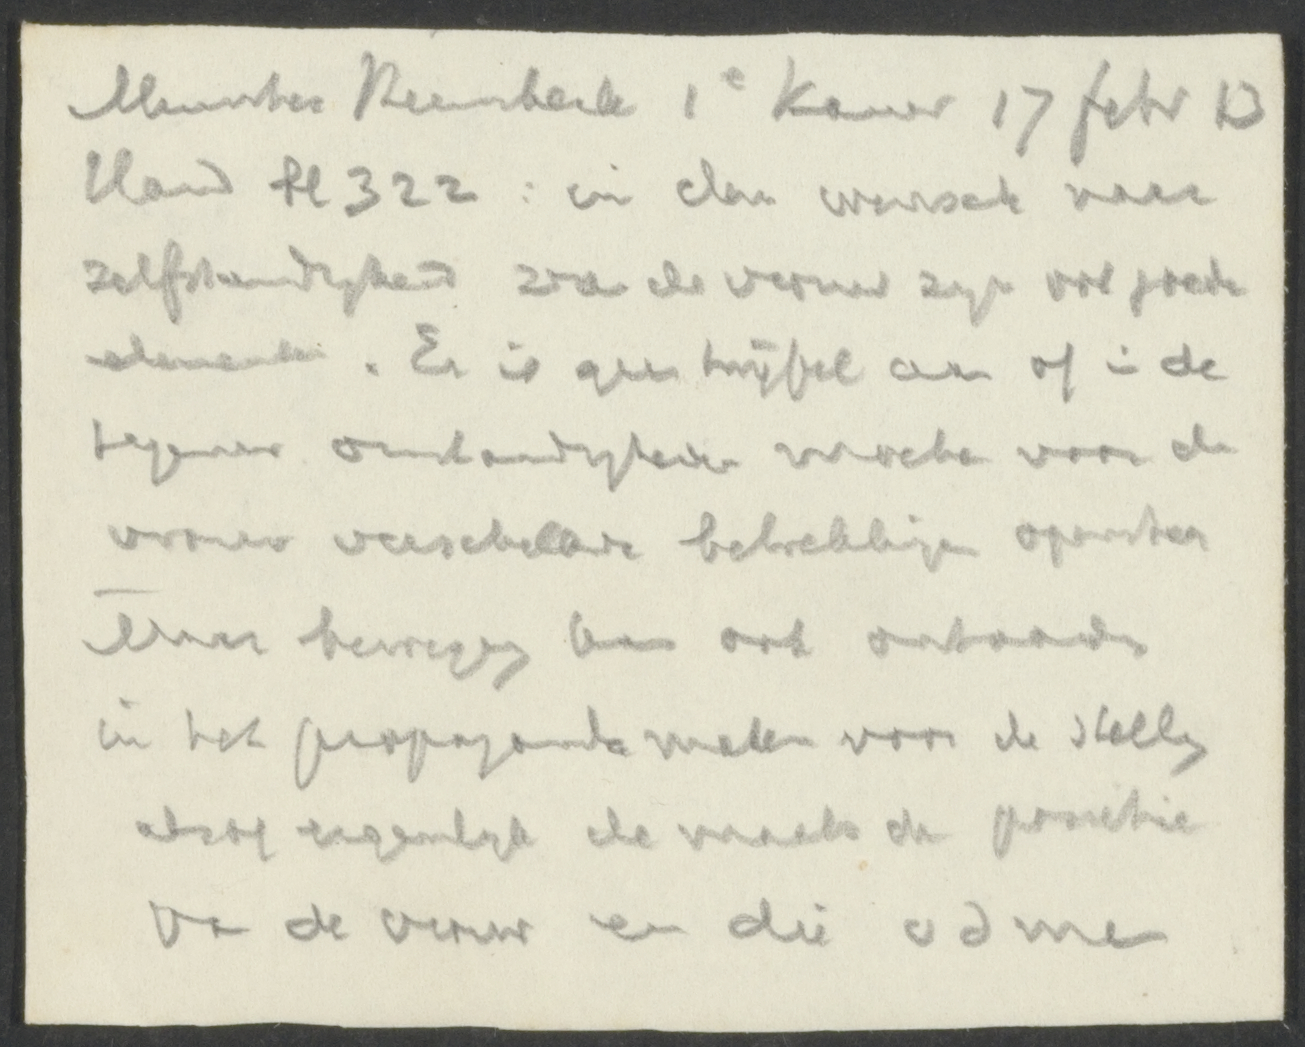 Minister Heemskerk 1e Kamer 17 febr 13
Hand bl 322 : in den wensch naar
zelfstandigheid van de vrouw zijn ook goede
elementen . Er is geen twijfel aan of in de
tegenw omstandigheden moeten voor de
vrouw verschillende betrekkingen openstaan
Maar beweging kan ook ontaarden
in het propaganda maken voor de stelling
alsof eigenlijk de maatsch positie
van de vrouw en die v d man